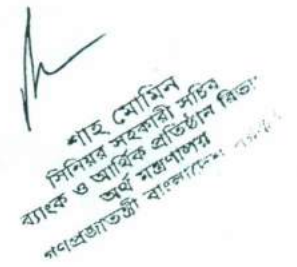 শাহ মোমিন
সিনিয়র সহকারী সচিব
ব্যাংক ও আর্থিক প্রতিষ্ঠান বিভা
অর্থ মন্ত্রণালয়
গণপ্রজাতন্ত্রী বাংলাদেশ